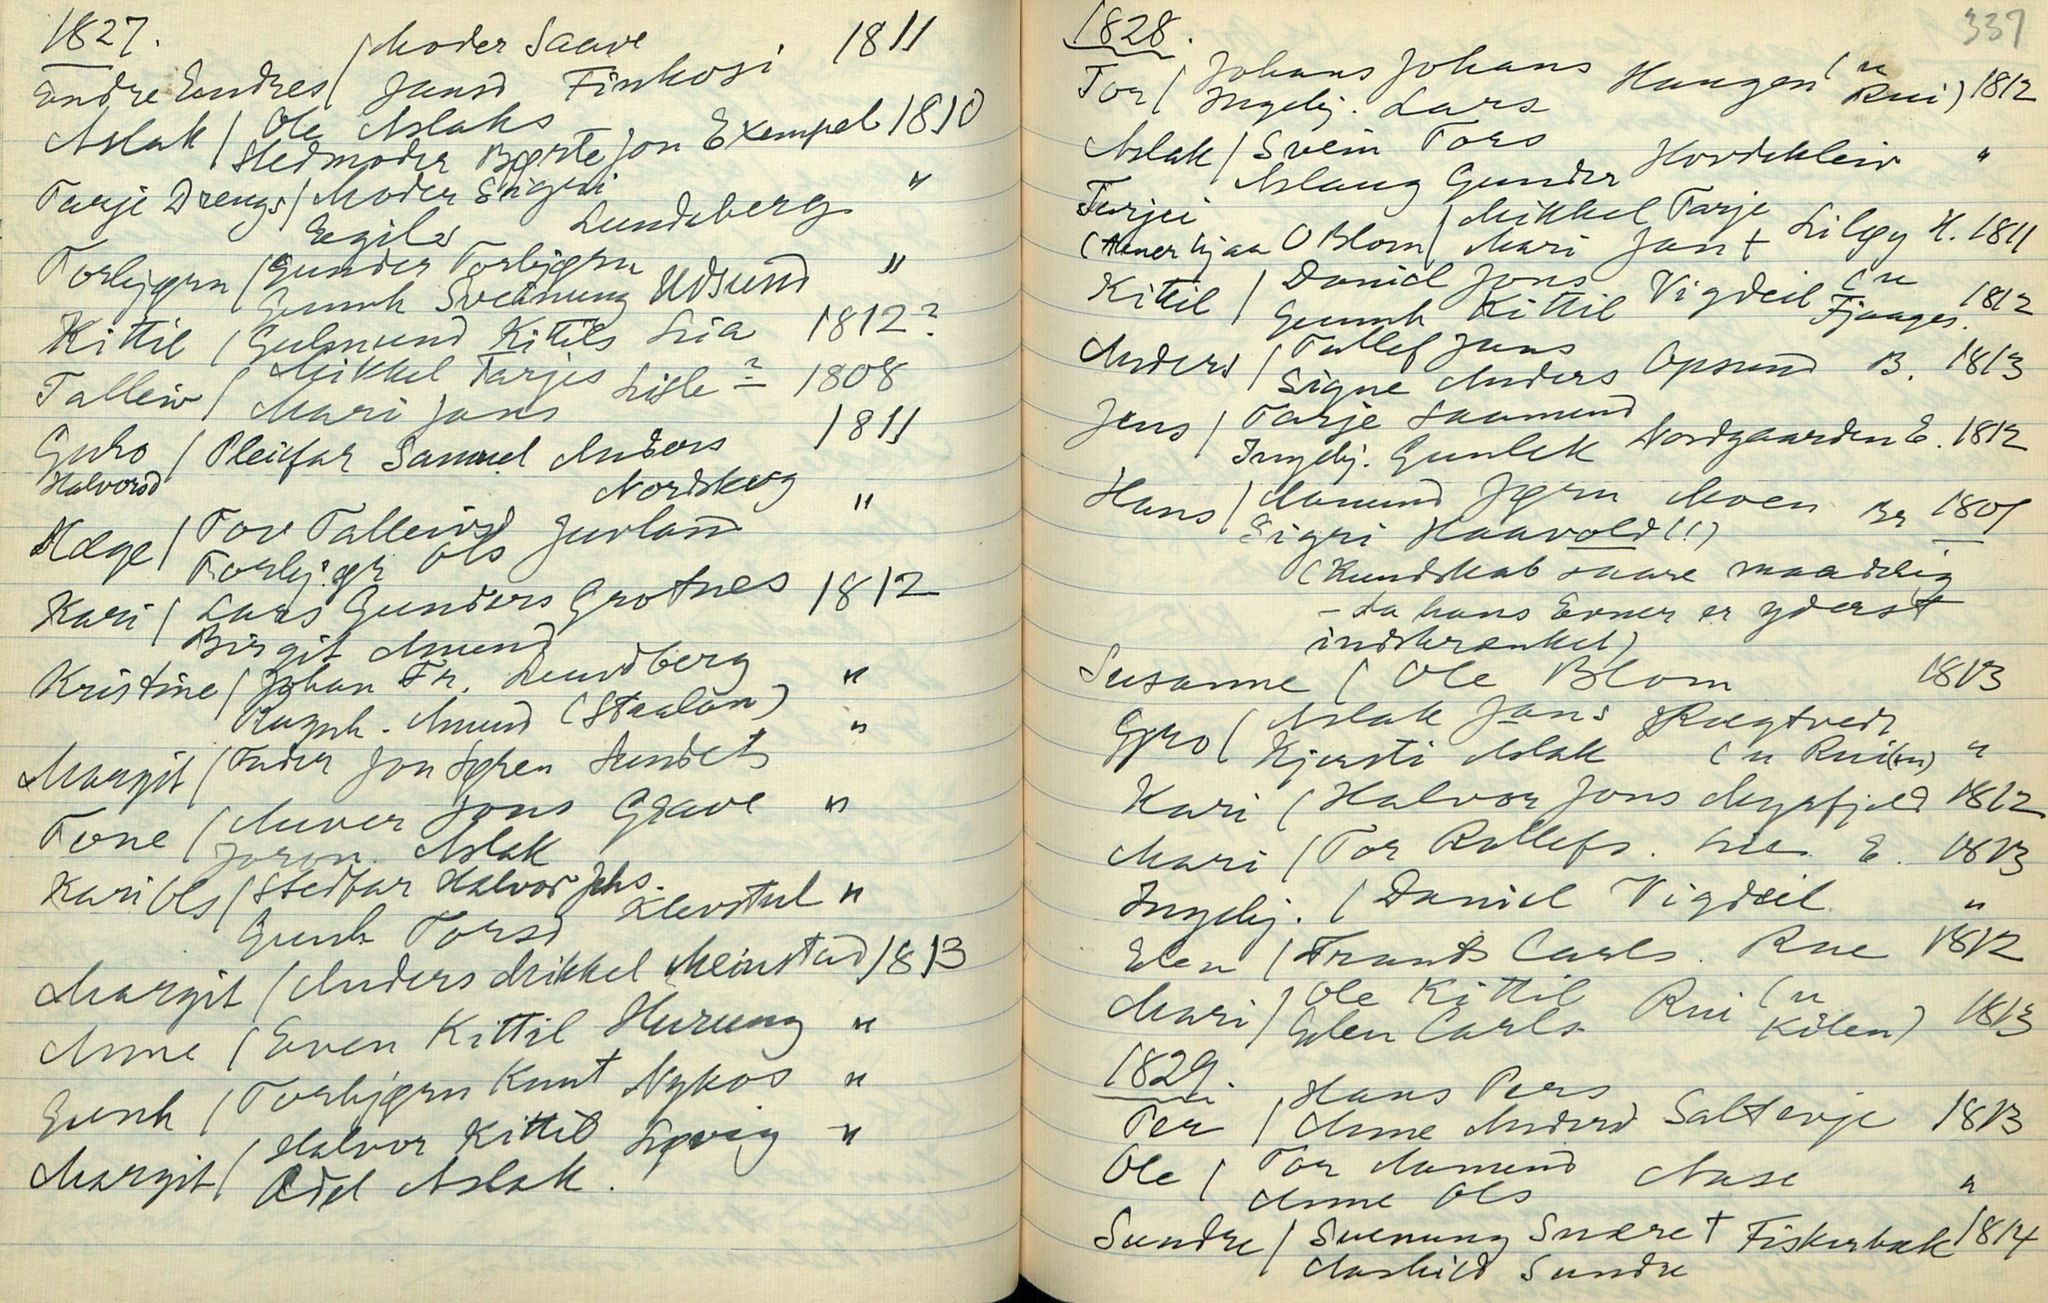 1827.
Endre Endres / Moder Saave 1811
Jansd Finkosi
Aslak / Ole Aslaks
Stedmoder Børte Jon Exempel 1810
Tarje Drengs / Moder Sigri "
Egils Lundsberg
Torbjørn / Gunder Torbjørn "
Gunh Svennung Udsund
Kittil / Gulmund Kittils Lia 1812?
Talleiv / Mikkel Tarjes Lisle ? 1808
Mari Jans
Guro / Pleifar Samuel Anders 1811
Halvorsd Nordskog
Hæge / Tov Talleivsd Jurland "
Torbjør Ols
Kari / Lars Gunders Grotnes 1812
Birgit Amund
Kristine / Johan Fr. Lundberg "
Ragnh. Amund (Straloa) "
Margit / Fader Jon Søren Sundets
Tone / Anver Jons Grave "
Joron Aslak
Kari Ols / Stedfar Halvor Jhs.
Gunh Torsd Klevstul "
Margit / Anders Mikkel Meinstad 1813
Anne / Even Kittil Hurung "
Gunh / Torbjørn Knut Nykos "
Margit / Halvor Kittil Løvig "
Adel Aslak.
337
1828.
Tor / Johans Johans Haugen (u Rui) 1812
Ingebj. Lars
Aslak / Svein Tors Hovdekleiv "
Aslaug Gunder
Tarjei / Mikkel Tarje Liløy H. 1811
(tener hjaa O Blom / Mari Jan +
Kittil / Daniel Jons Vigdeil (u 1812
Gunh Kittil Fjaages.
Anders / Tallef Jens Opsund B. 1813
Signe Anders
Jens / Tarje Saamund
Ingebj. Gunlek Nordgaarden E. 1812
Hans / Aamund Jørn Moen Br 1801
Sigri Haavold (!)
(Kundskab saare maadelig
- da hans Evner er yderst
indskrænket)
Susanne / Ole Blom 1813
Gro / Aslak Jans Rægtvedt
Kjersti Aslak (u Rui(en) "
Kari / Halvor Jons Myrfjeld 1812
Mari / Tor Rollefs. Lie E. 1813
Ingebj. / Daniel Vigdeil "
Elen / Frants Carls. Rue 1812
Mari / Ole Kittil Rui (u 1813
Elen Carls Kilen)
1829.
Per / Hans Pers
Anne Andersd Salterje 1813
Ole / Tor Aamund Aase "
Anne Ols
Sundre / Svenung Snære + Fiskerbæk 1814
Aashild Sundre